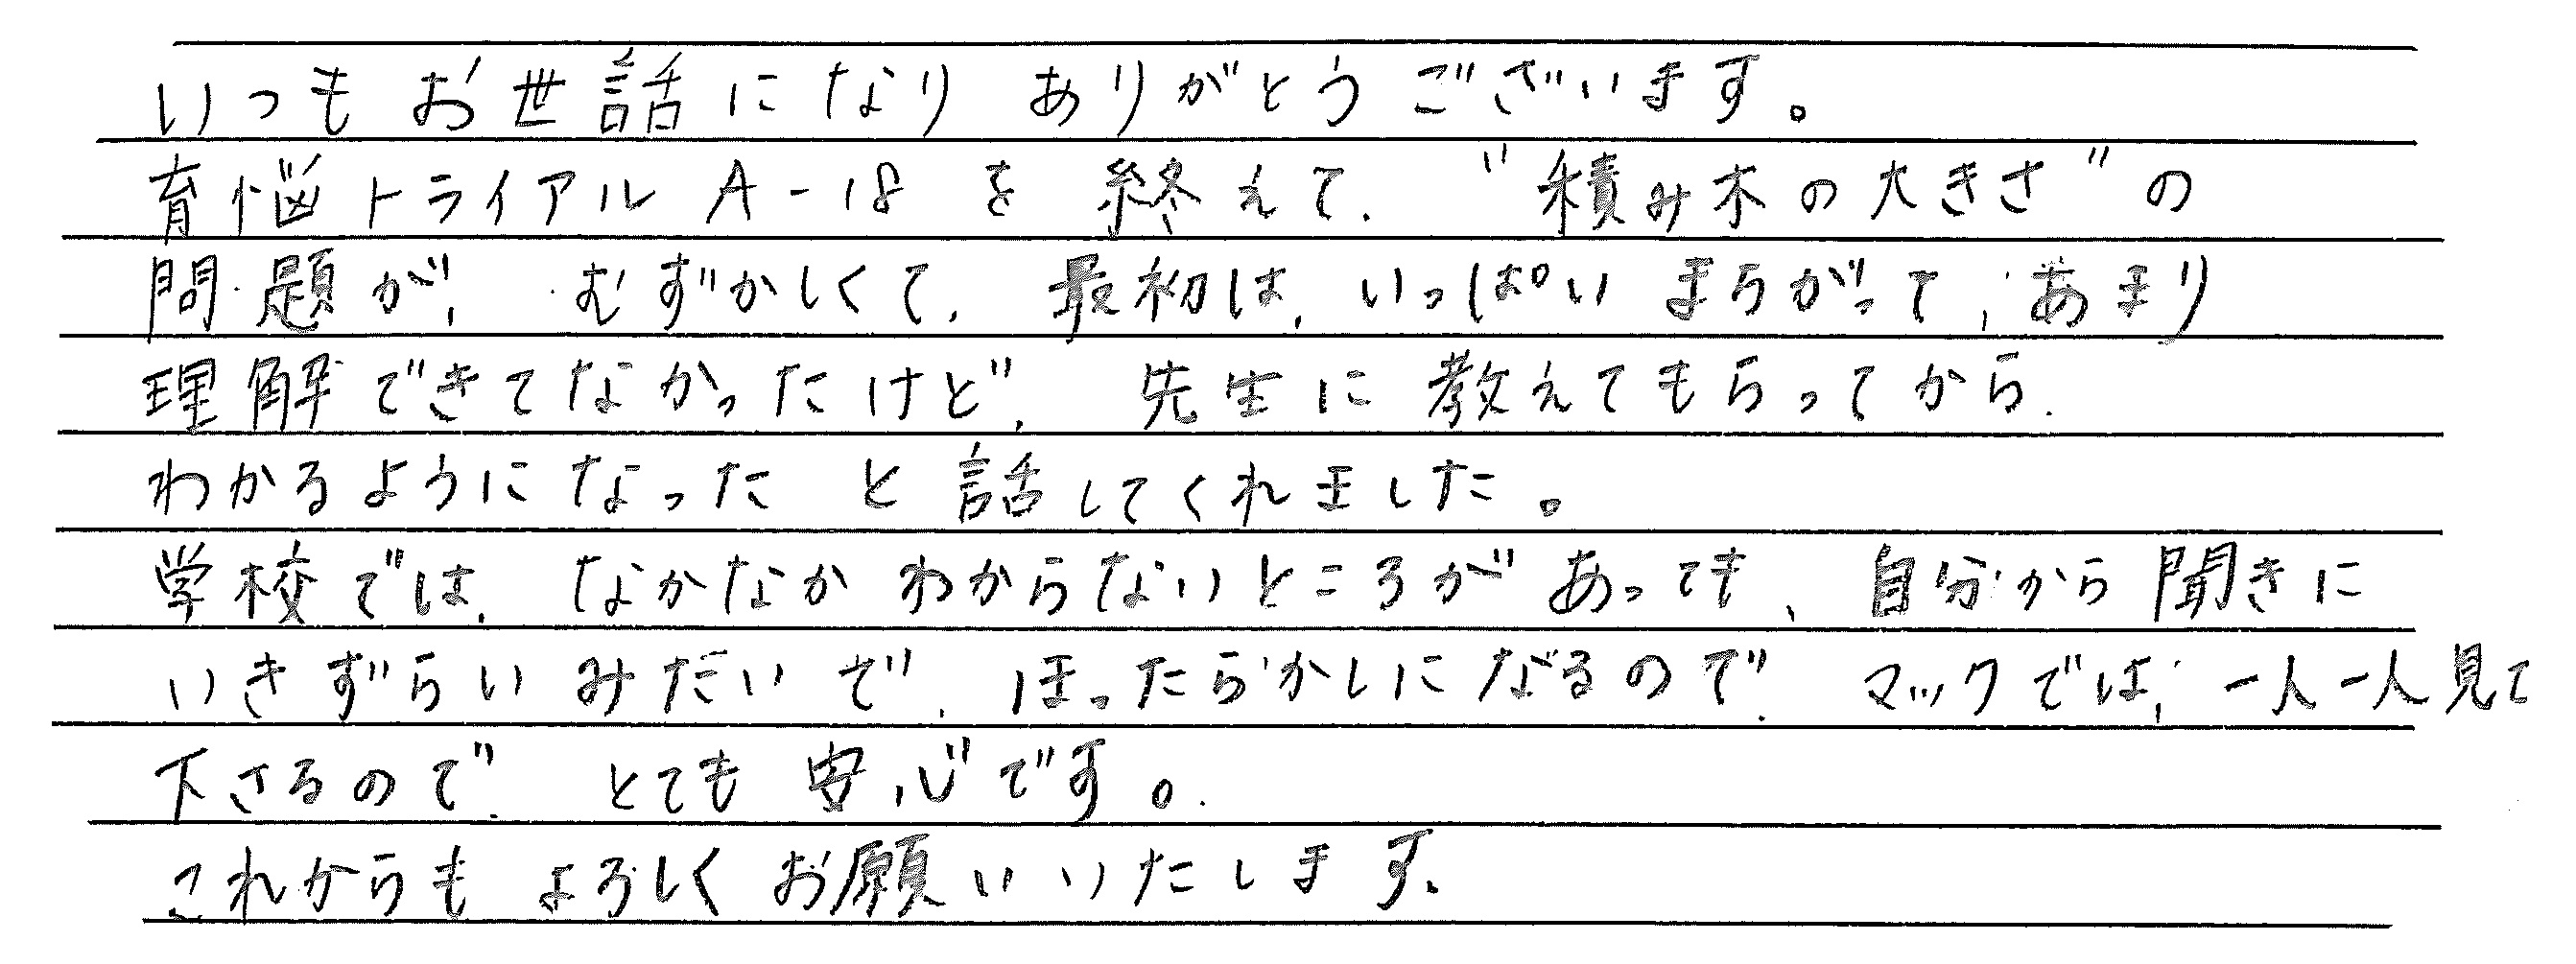 いつもお世話になり ありがとうございます。
育悩トライアル A-18 を 終えて、"積み木の大きさ"の
問題が、むずかしくて、最初は、いっぱいまちがって、あまり
理解できてなかったけど、先生に教えてもらってから、
わかるようになった と 話してくれました。
学校では、なかなか わからないところが あっても、自分から聞きに
いきずらいみたいで、ほったらかしになるので、マックでは、一人一人見て
下さるので、とても 安心です。
これからも よろしく お願いいたします。